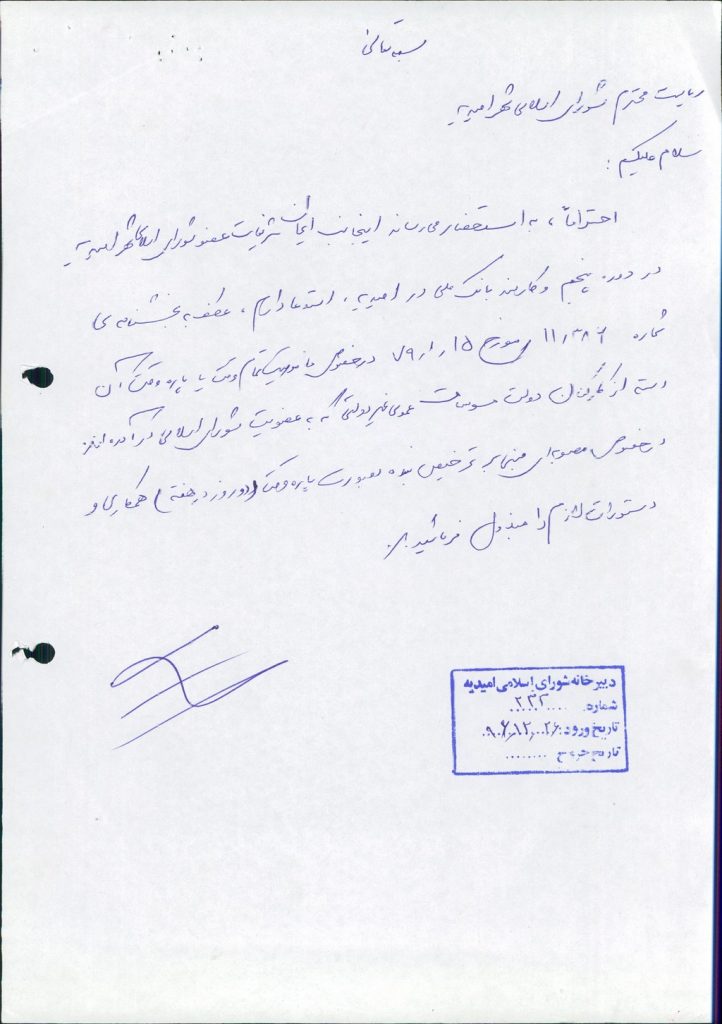 بسمه تعالی
ریاست محترم شورای اسلامی شهر امیدیه
سلام علیکم :
احتراماً ، به استحضار میرساند اینجانب ایمان عضو شورای اسلامی شهر امیدیه
در دوره پنجم و کارمند بانک ملی در امیدیه ، استدعا دارم ، عطف به بخشنامه ی
شماره مورخ ۷۹/۱/۱۵ در خصوص ماموریت تمام وقت یا پاره وقت آن
دسته از کارکنان دولت موسسات عمومی غیر دولتی که به عضویت شورای اسلامی در آمده اند
در خصوص مصوبه ای مبنی بر ترخیص بنده بصورت پاره وقت (دو روز در هفته) همکاری و
دستورات لازم را مبذول فرمائید
دبیرخانه شورای اسلامی امیدیه
شماره: ۲۳۲
تاریخ ورود:
تاریخ خروج